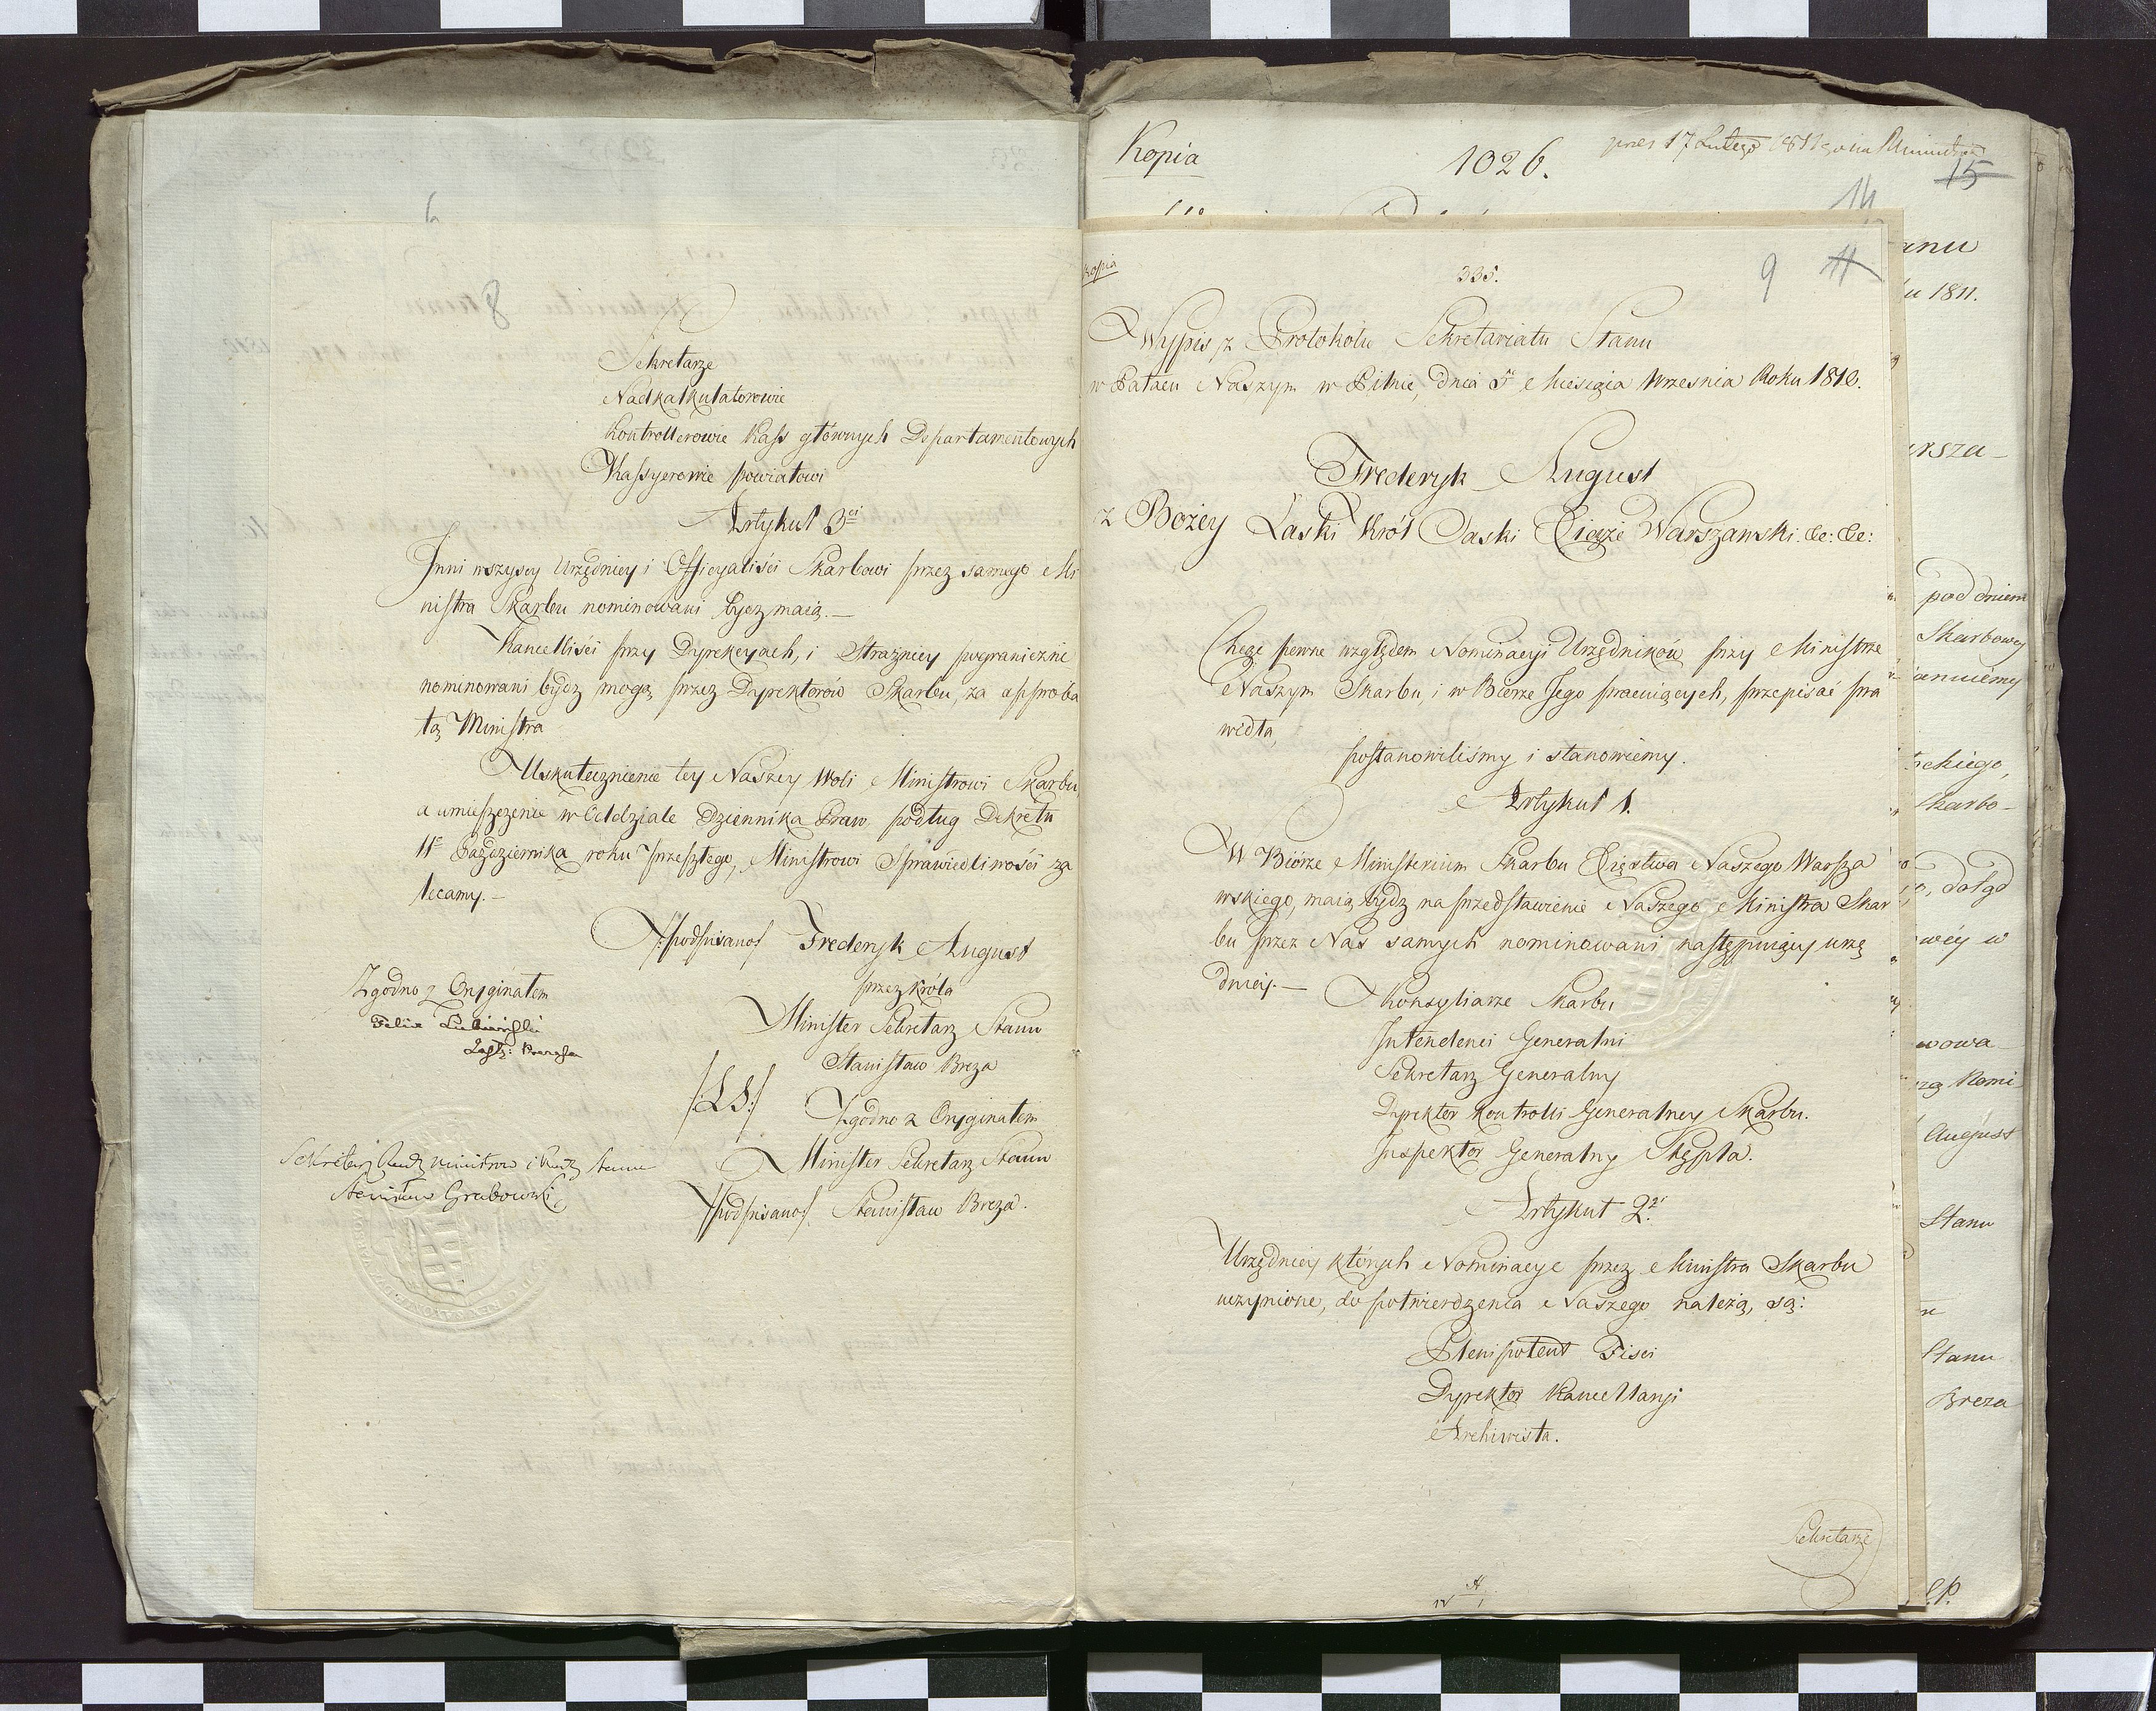 6
8
Sekretarze
Nadkalkulatorowie
Kontrollerowie Kass głównych Departamentowych
Kassyerowie powiatowi
Artykuł 3ci
Inni wszyscy Urzędnicy i Officyaliści Skarbowi przez samego Mi
nistra Skarbu nominowani bydz maią.—
Kancelliści przy Dyrekcyach, i Straznicy pograniczni
nominowani bydz mogą przez Dyrektorów Skarbu, za approba
tą Ministra
Uskutecznienie tey Naszey Woli Ministrowi Skarbu
a umieszczenie w Oddziale Dziennika Praw podług Dekretu
11º Pazdziernika roku przeszłego, Ministrowi Sprawiedliwości za
lecamy.—
/:podpisano:/ Frederyk August
przez Króla
Minister Sekretarz Stanu
Stanisław Breza
/:LS:/ Zgodno z Oryginałem
Minister Sekretarz Stanu
/podpisano/ Stanisław Breza.
Zgodno z Oryginałem
Felix Lubieński
Sekretarz Rady Ministrow i Rady Stanu
Stanisław Grabowski
Kopia
1026.
pres 17 Lutego 1811
15
14
Kopia
335.
9 11
Wypis z Protokołu Sekretariatu Stanu
w Pałacu Naszym w Pilnic, dnia 5º Miesiąca Wrzesnia Roku 1810.
Frederyk August
z Bożey Łaski Król Saski Xiąże Warszawski. &c: &c:
Chcąc pewne względem Nominacyi Urzędników przy Ministrze
Naszym Skarbu, i w Biórze Jego pracuiących, przepisać pra
widła,
postanowiliśmy i stanowiemy.
Artykuł 1.
W Biórze Ministerium Skarbu Xięstwa Naszego Warsza
wskiego, maią bydz na przedstawienie Naszego Ministra Skar
bu przez Nas samych nominowani następuiący urzę
dnicy.—
Konsyliarze Skarbu
Intendenci Generalni
Sekretarz Generalny
Dyrektor Kontrolli Generalney Skarbu.
Inspektor Generalny Stępla.
Artykuł 2gi
Urzędnicy których Nominacye przez Ministra Skarbu
uczynione, do potwierdzenia Naszego należą, są:
Plenipotent Fisci
Dyrektor Kancellaryi
Archiwista.
Sekretarze
anu
u 1811.
arsza-
pod dniem
Skarbowey
Skarbo-
wéy w
August
Stanu
Stanu
Breza